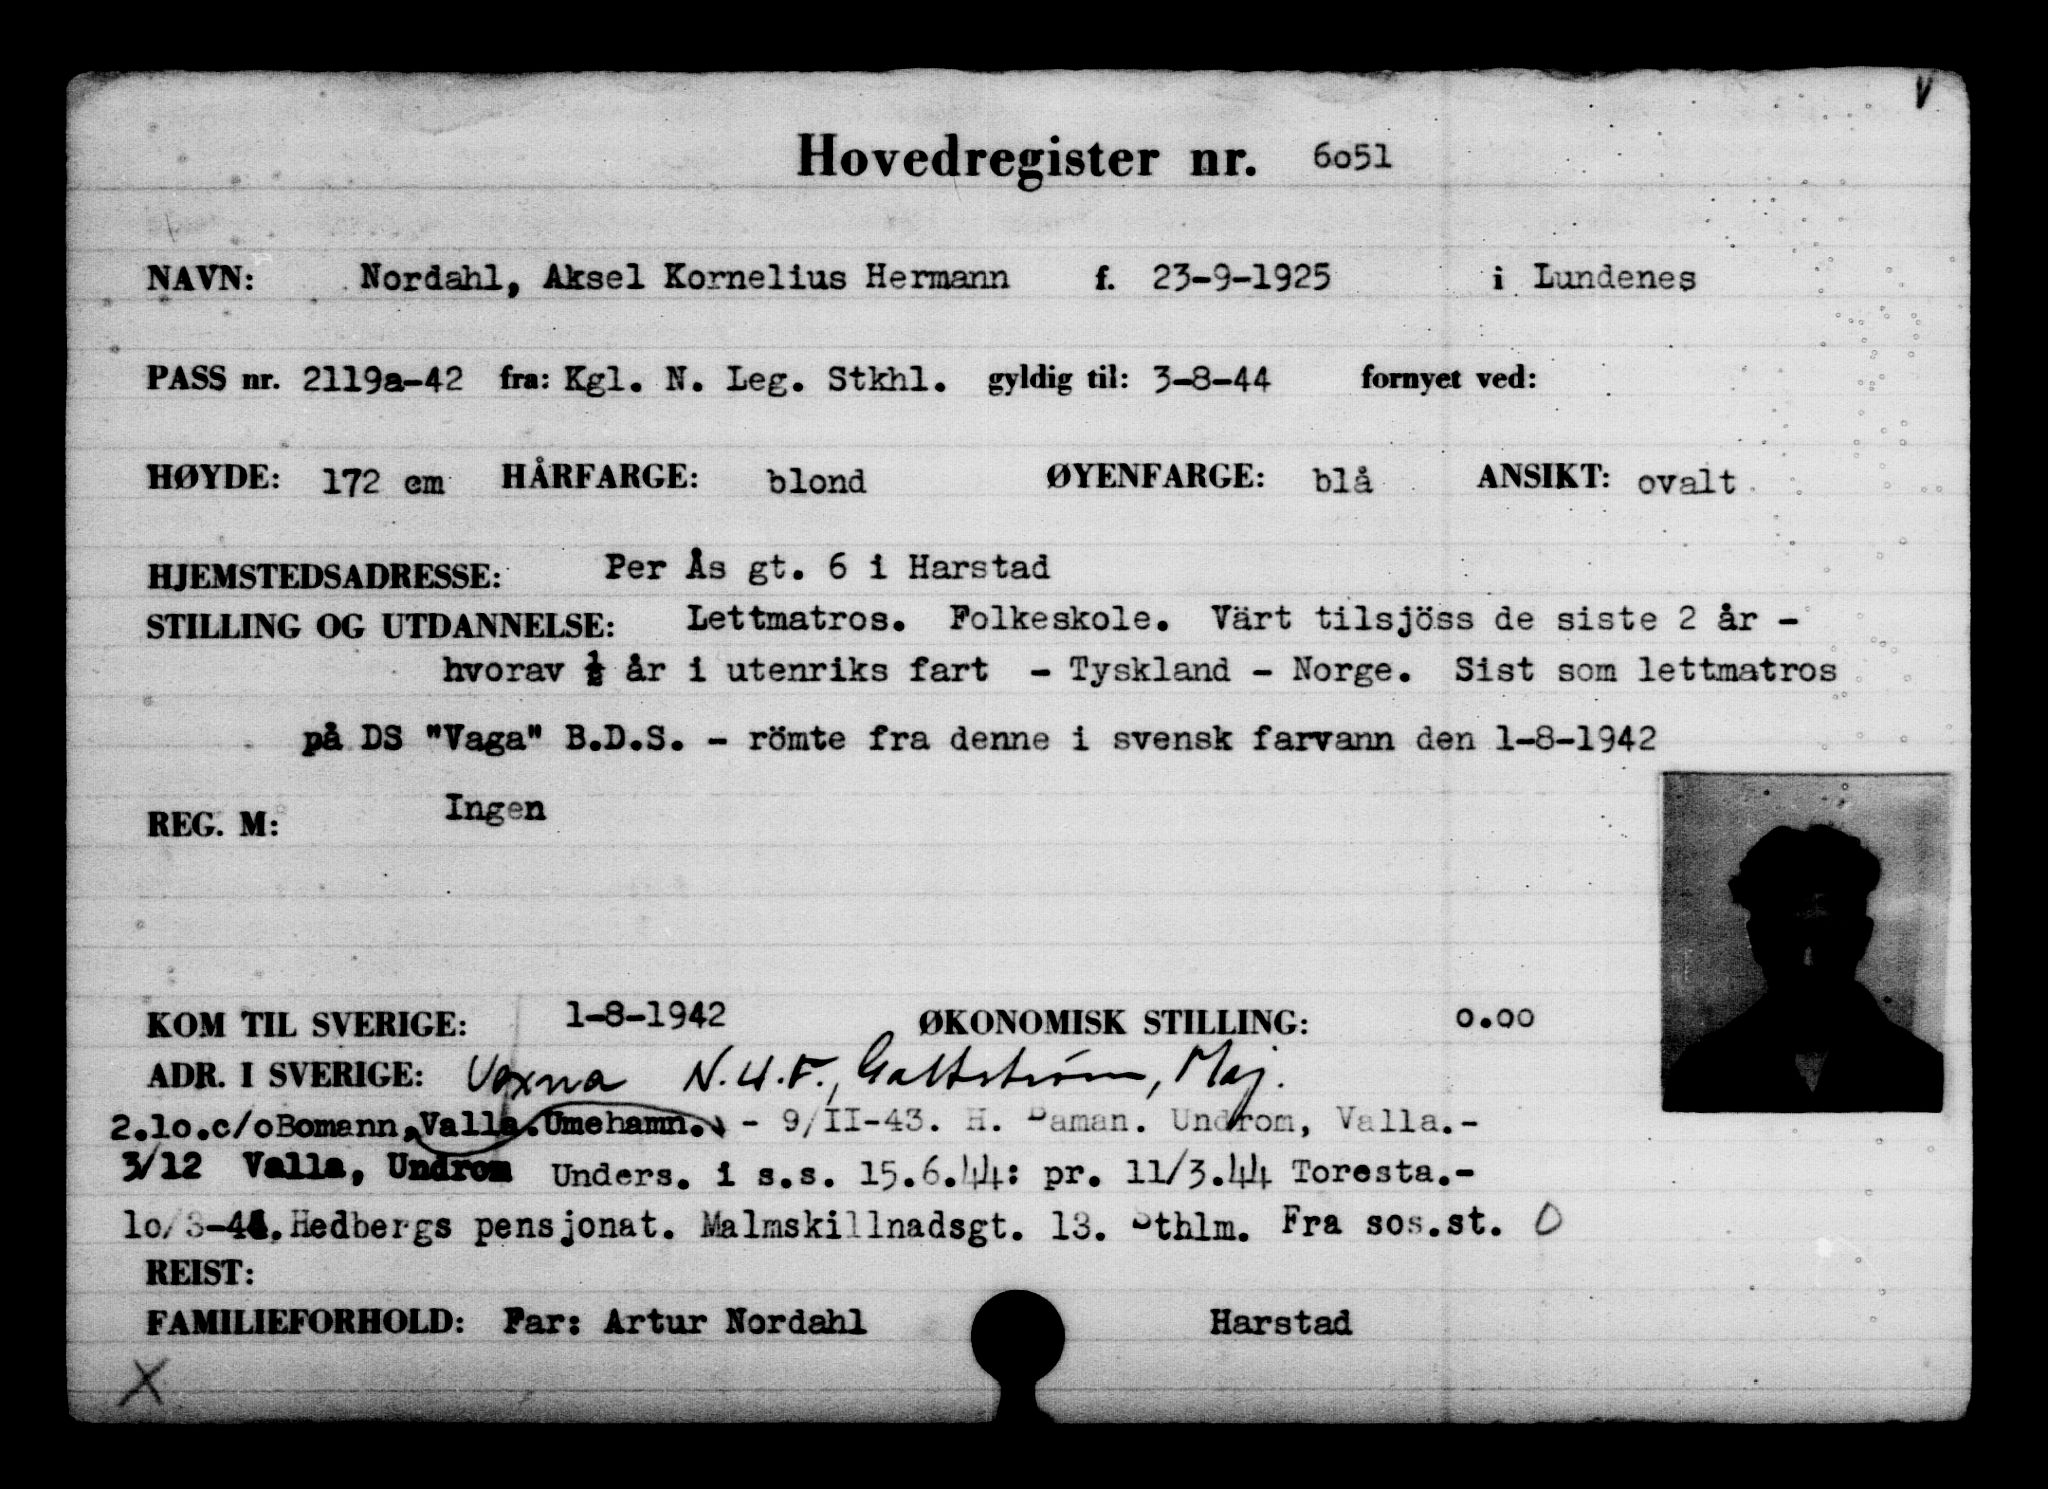 V
Hovedregister nr. 6o51
NAVN: Nordahl, Aksel Kornelius Hermann f. 23-9-1925 i Lundenes
PASS nr. 2119a-42 fra: Kgl. N. Leg. Stkhl. gyldig til: 3-8-44 fornyet ved:
HØYDE: 172 cm HÅRFARGE: blond ØYENFARGE: blå ANSIKT: ovalt
HJEMSTEDSADRESSE: Per Ås gt. 6 i Harstad
STILLING OG UTDANNELSE: Lettmatros. Folkeskole. Värt tilsjöss de siste 2 år -
hvorav ½ år i utenriks fart - Tyskland - Norge. Sist som lettmatros
på DS "Vaga" B.D.S. - römte fra denne i svensk farvann den 1-8-1942
REG. M: Ingen
KOM TIL SVERIGE: 1-8-1942 ØKONOMISK STILLING: o.oo
ADR. I SVERIGE: Voxna N.U.F., Galtström, Maj.
2.lo.c/oBomann, Valla. Umehamn. - 9/II-43. H. Baman. Undrom, Valla.-
3/12 Valla, Undrom Unders. i s.s. 15.6.44: pr. 11/3.44 Toresta.-
lo/3-44. Hedbergs pensjonat. Malmskillnadsgt. 13. Sthlm. Fra sos.st. O
REIST:
FAMILIEFORHOLD: Far: Artur Nordahl Harstad
X